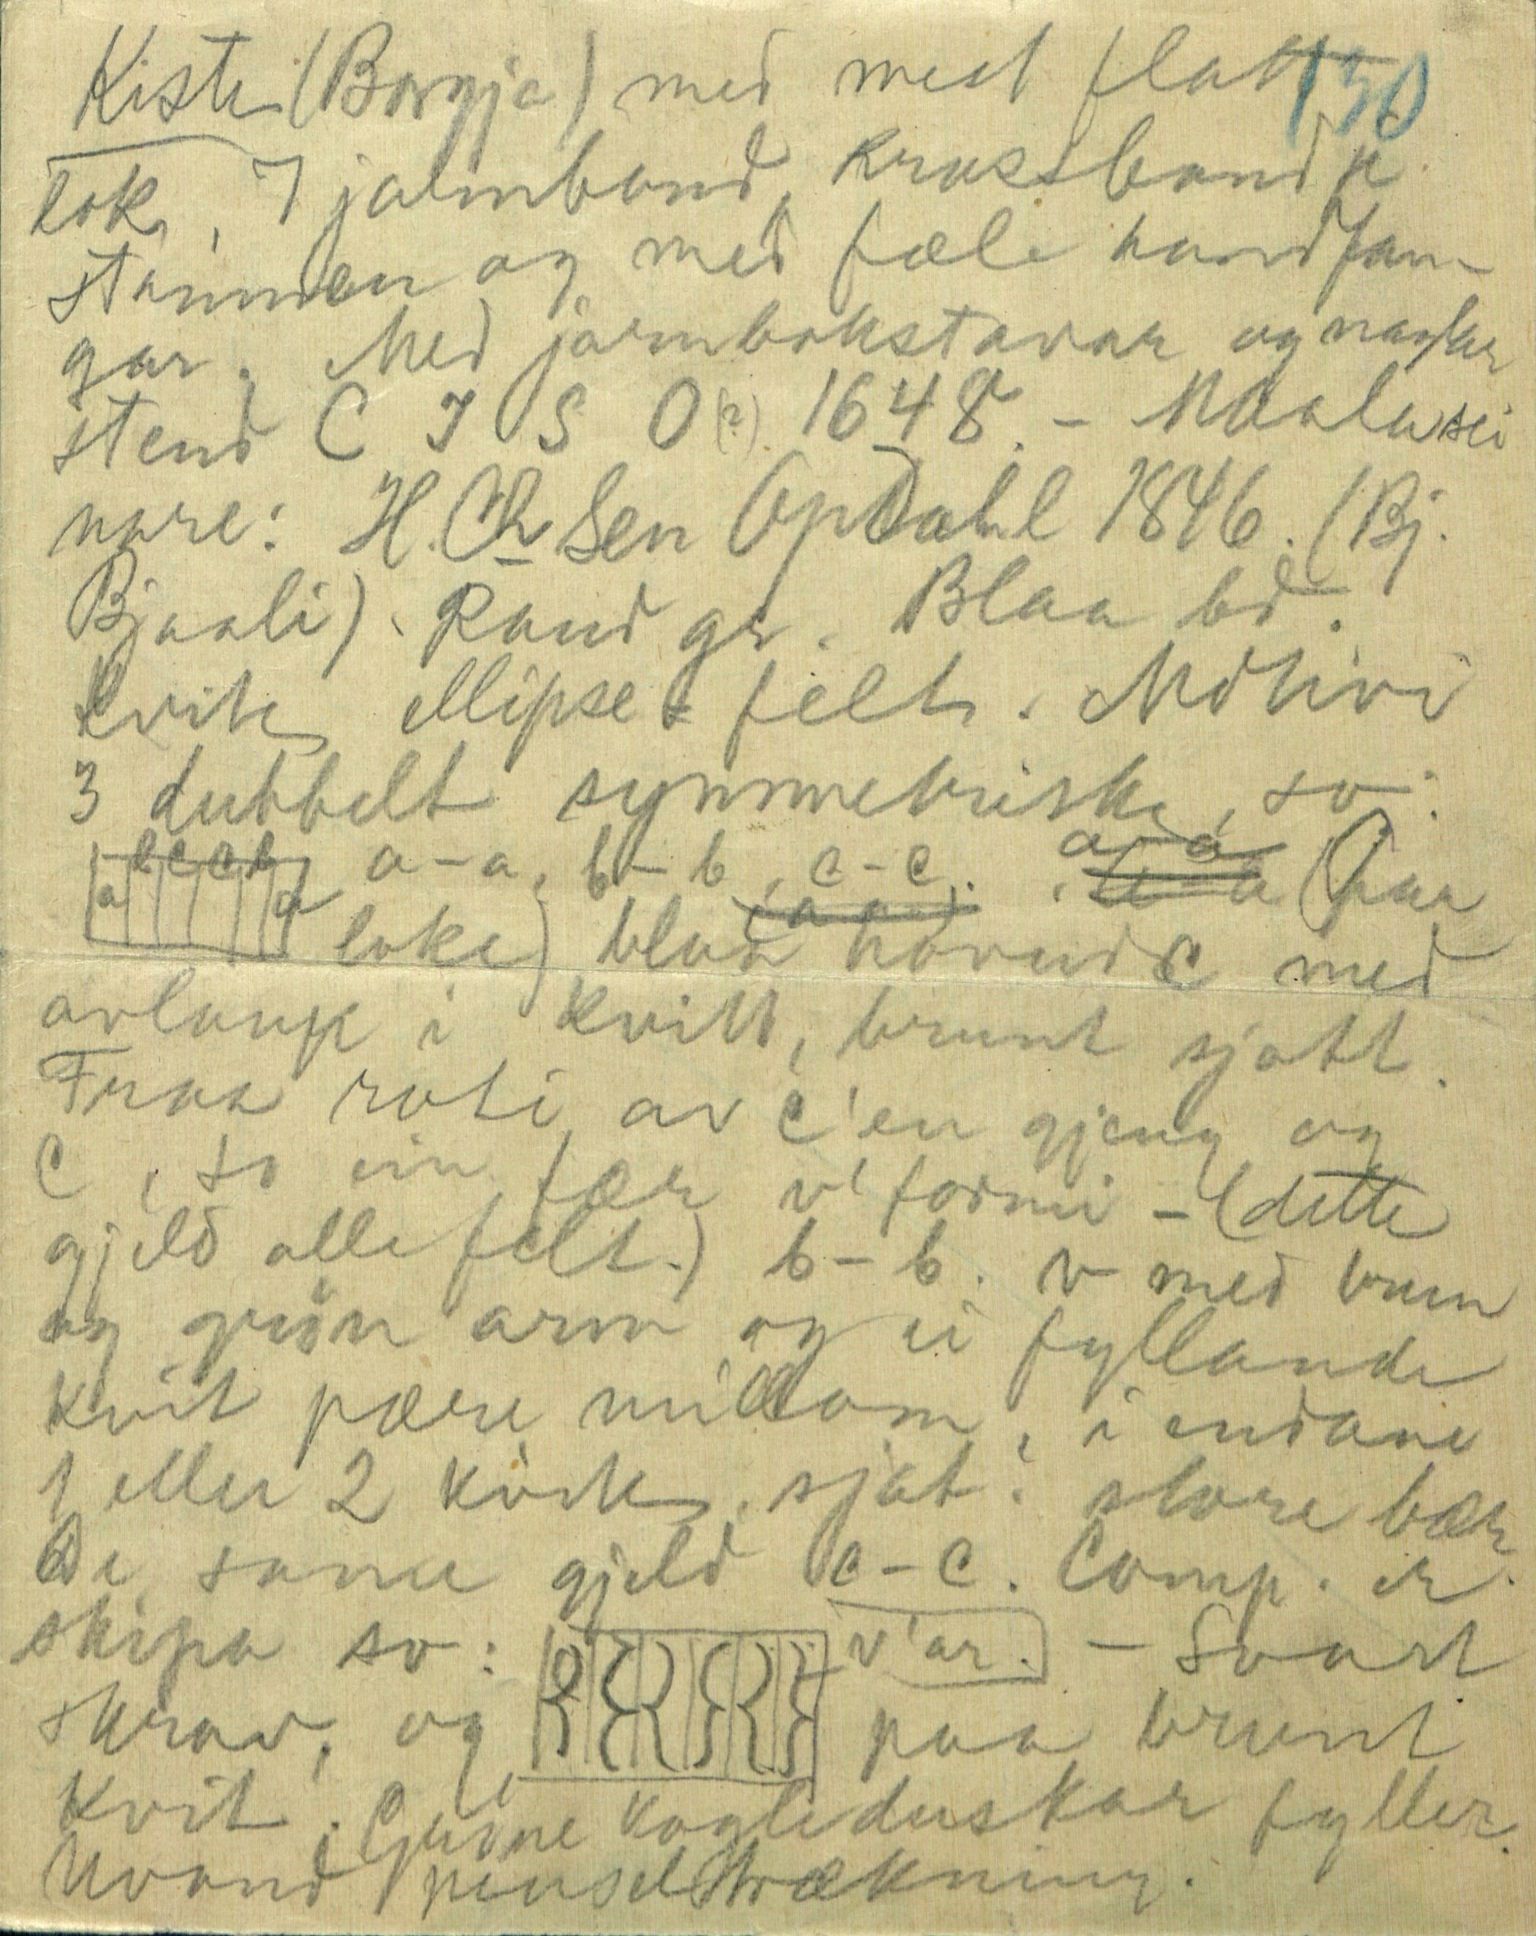 Kiste (Borgja) med mest flatt 130
lok, 7 jalmbond, krossbond p
stammen og med fæle handfan-
gar. Med jarnbokstavar og naglar
stend C I S O(?) 1648. - Maala sei
nare: H. Ch Sen Opdahl 1846. (Bj.
Bjaali). Rand gr. Blaa bd.
kvite ellipse felt. Motivi
3 dubbelt symmetriske, so:
a b c c b a a-a, b-b, c-c. a-a (paa
loke) blaa hovud c med
avlaup i kvitt, brunt sjatt.
Fraa roti av c'en gjeng og
C, so ein fær v'formi - (dette
gjeld alle felt.) b-b. v med brun
og grön arm og ei fyllande
kvit pære millom, i endane
1 eller 2 kvite sjat. store bær
De same gjeld c-c. Comp. er
skipa so: v'ar. - Svart
skrav, og paa brunt
kvit. Gröne kogleduskar fyller.
Uvand penselstrækning.